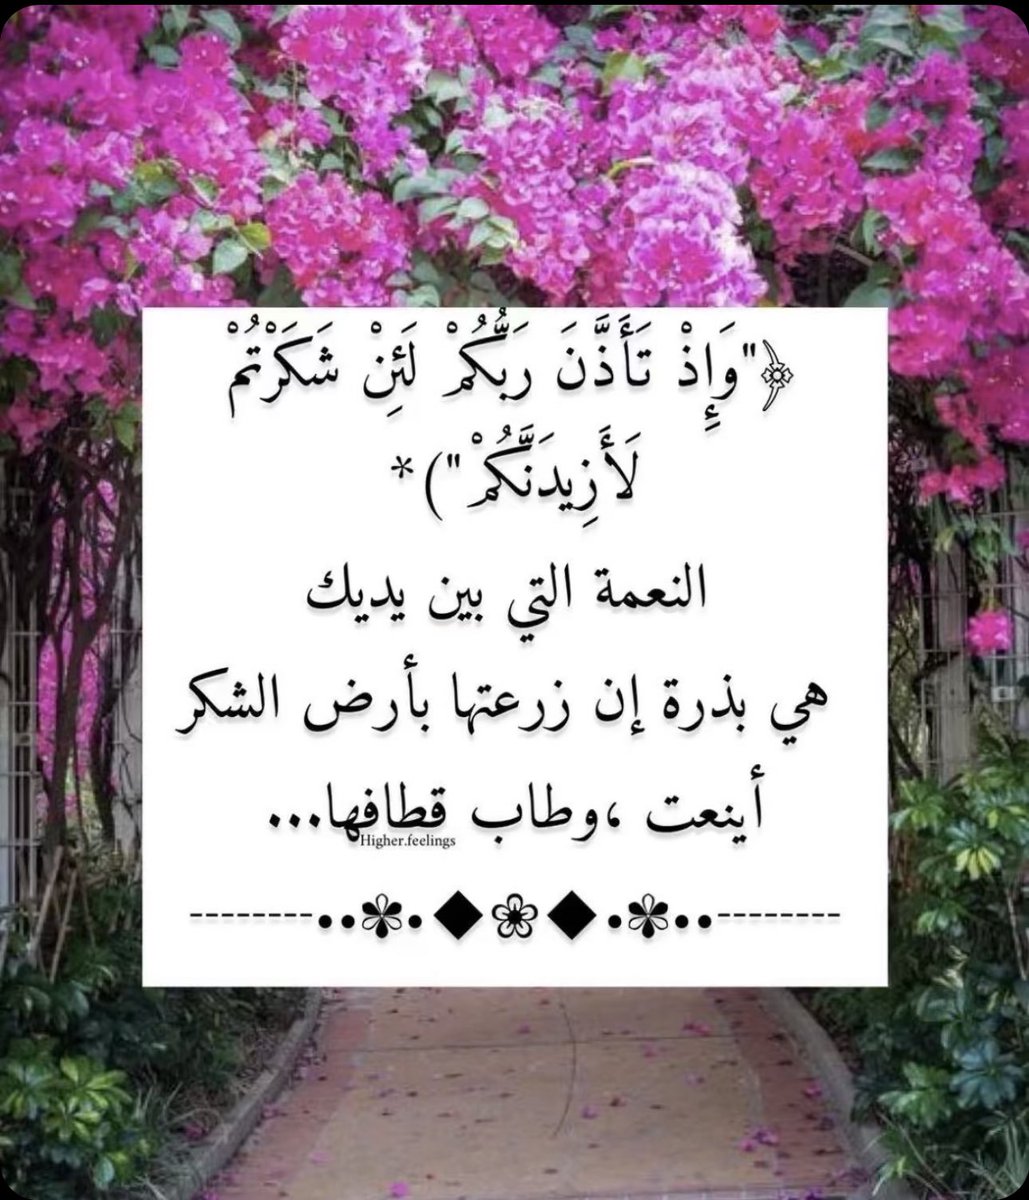 ﴿"وَإِذْ تَأَذَّنَ رَبُّكُمْ لَئِنْ شَكَرْتُمْ
لَأَزِيدَنَّكُمْ")*
النعمة التي بين يديك
هي بذرة إن زرعتها بأرض الشكر
أينعت ،وطاب قطافها...
Higher.feelings